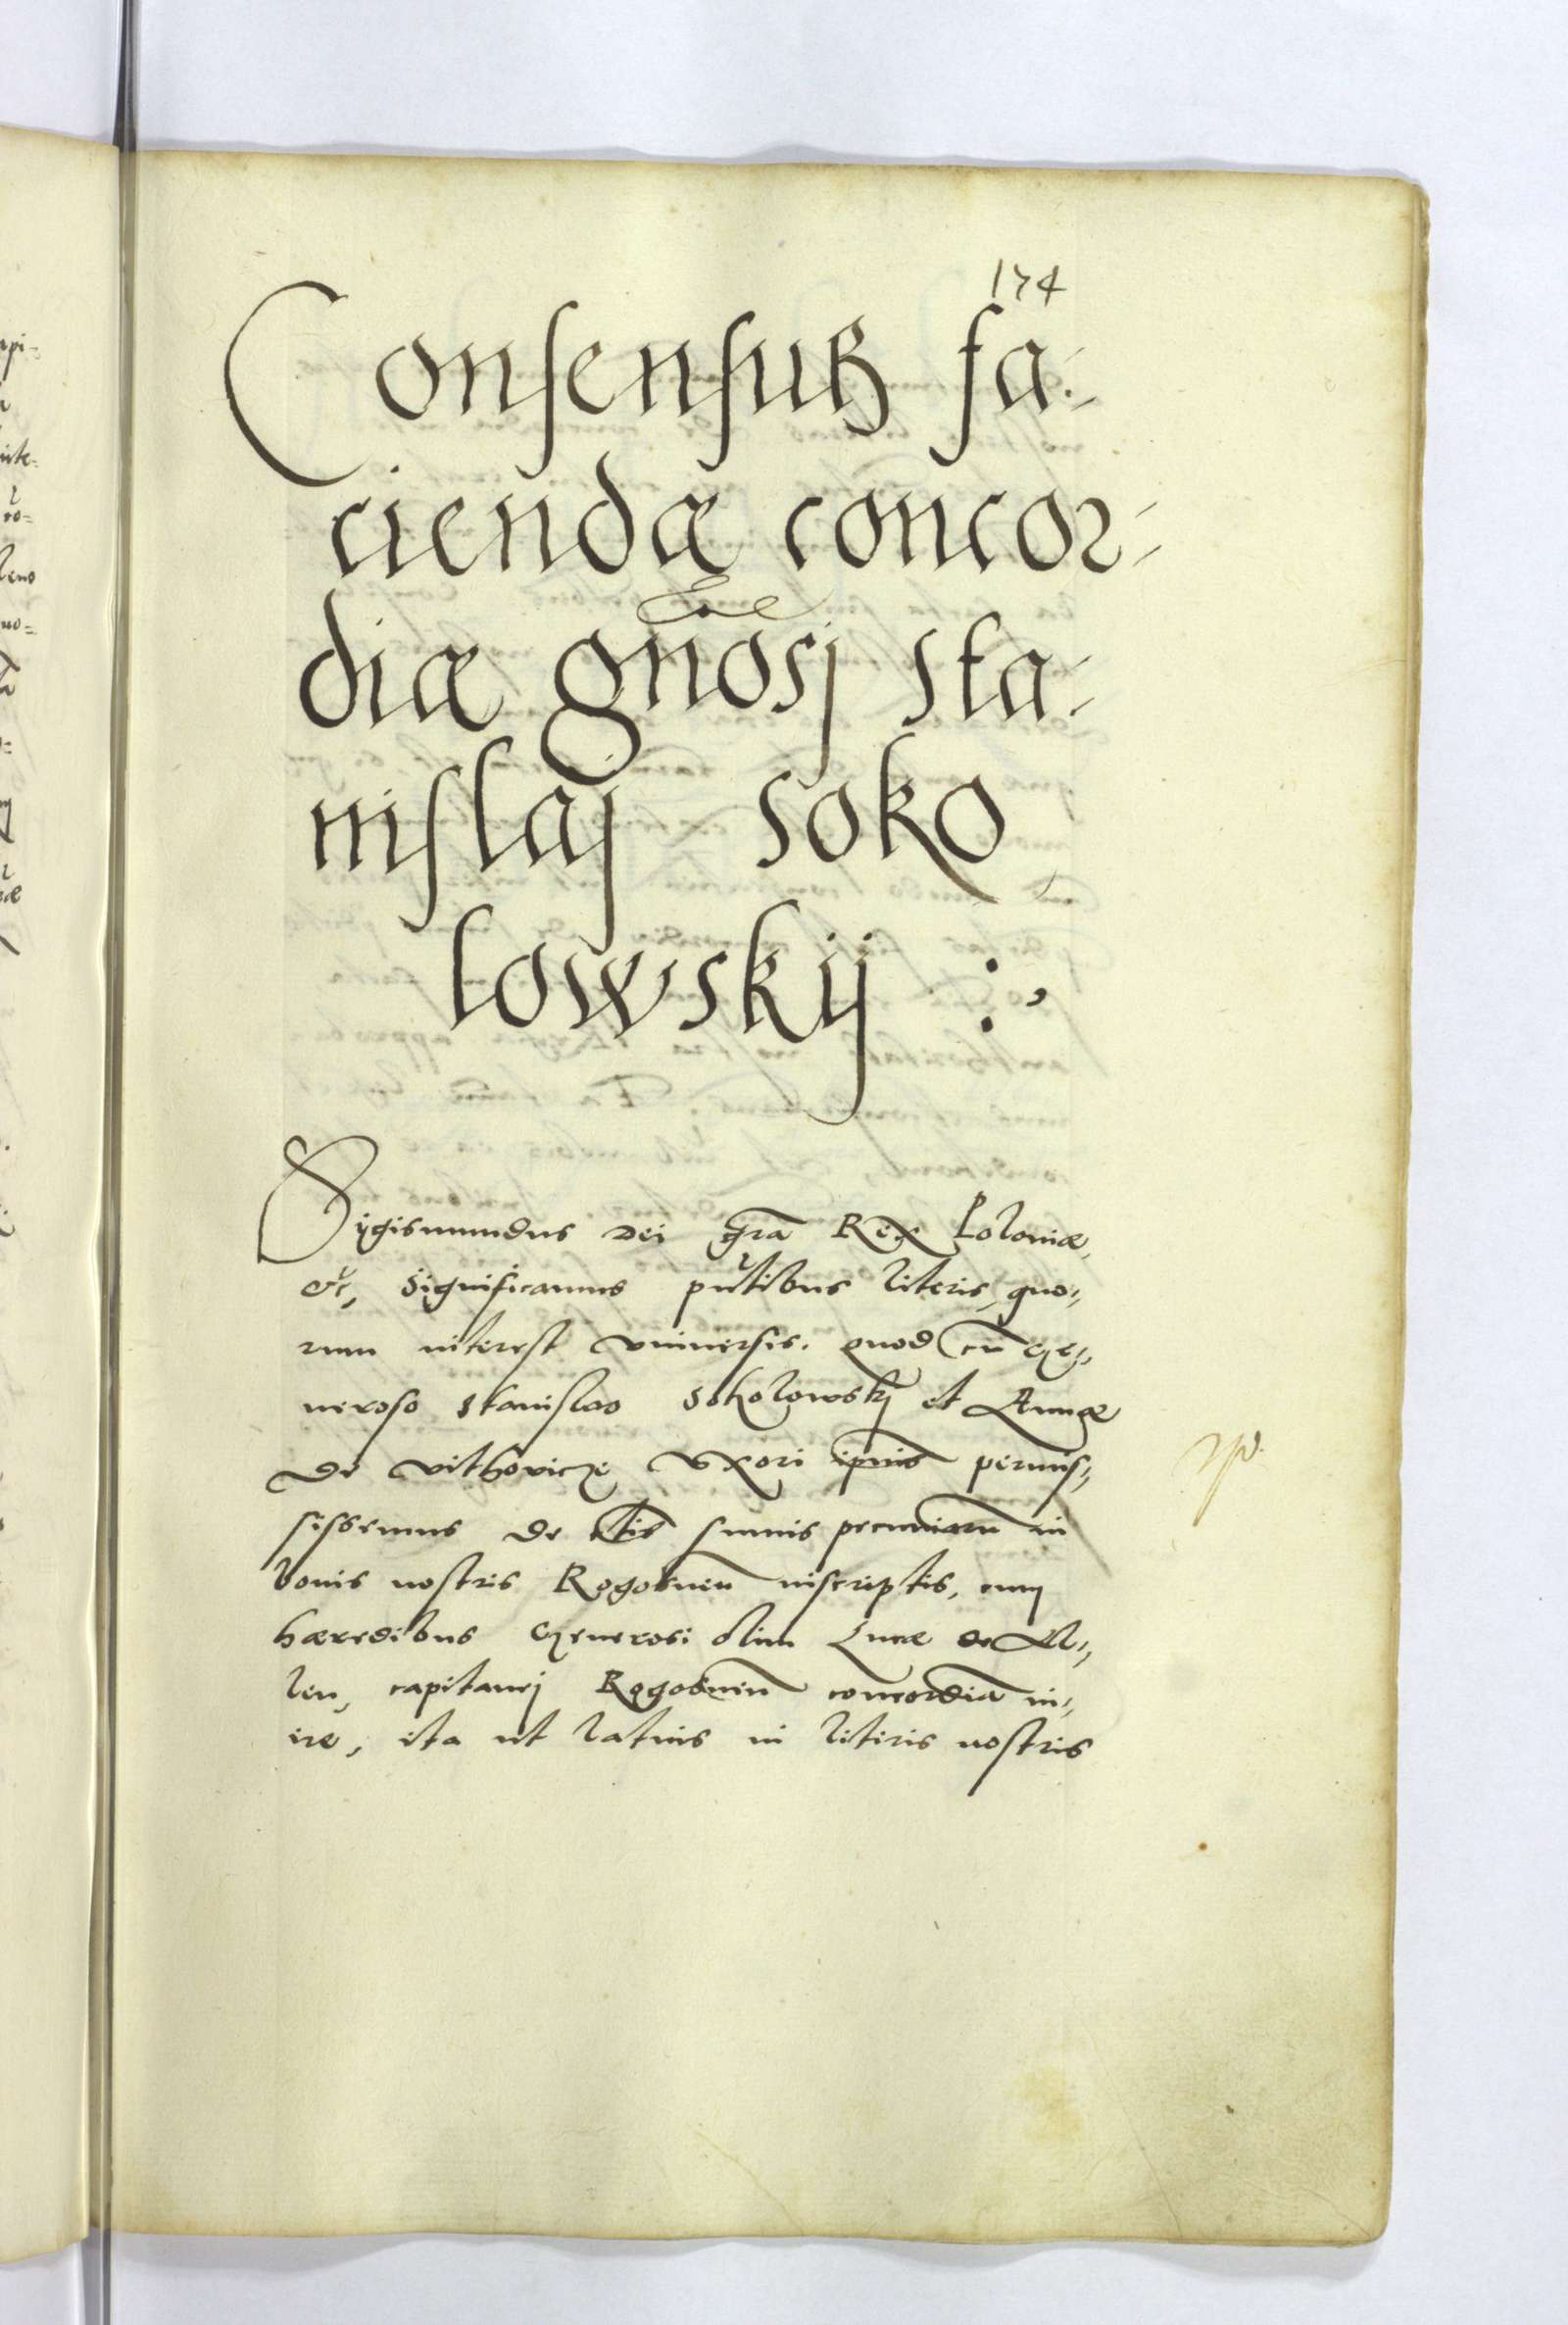 174
Consensus fa-
ciendæ concor-
diæ gnosj Sta-
nislaj Soko
lowskij
Sigismundus Dei gra Rex Poloniæ,
etc, Significamus pntibus literis, quo-
rum interest vniuersis. quod cu Ge-
neroso Stanislao Sokolowskj et Annæ
De Vithovicze Vxori ipsius permis-
sissemus De ctis summis pecuniaru in
bonis nostris Rogosnen inscriptis, cum
hæredibus Generosi olim Lucæ de
capitanej Rogosnen concordia in-
ire, ita ut latius in literis nostris